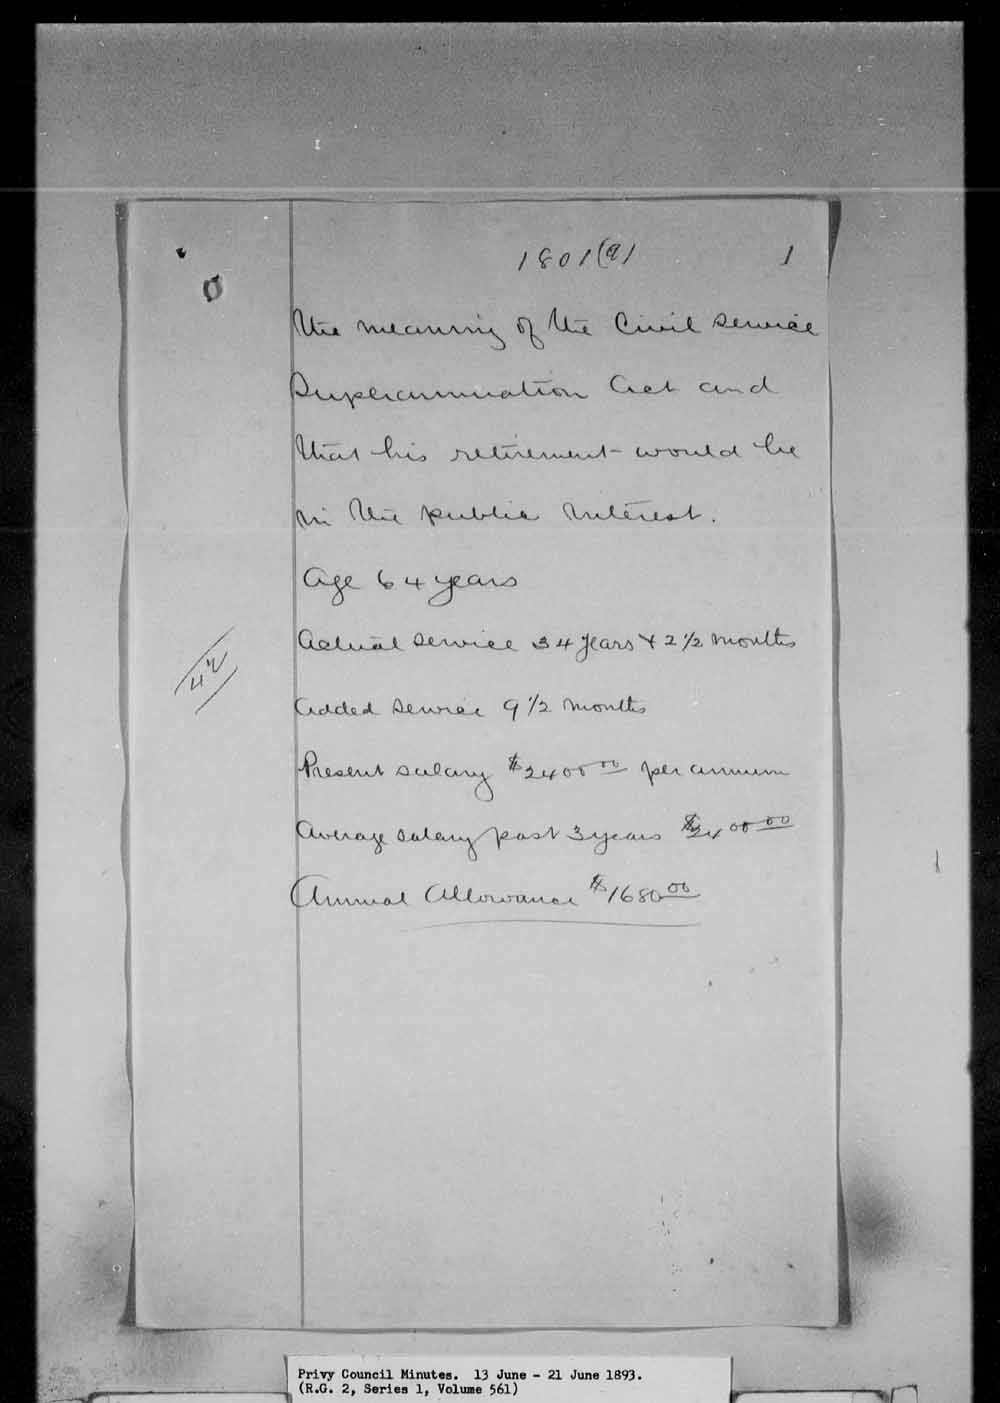 1801(a) 1
the meaning of the Civil Service
Superannuation Act and
that his retirement would be
in the public interest.
Age 64 years
Actual service 34 years & 2 1/2 months
42
Added service 9 1/2 months
Present salary $2400 00 per annum
Average salary past 3 years $2400 00
Annual Allowance $1680 00
Privy Council Minutes. 13 June - 21 June 1893.
(R.G. 2, Series 1, Volume 561)